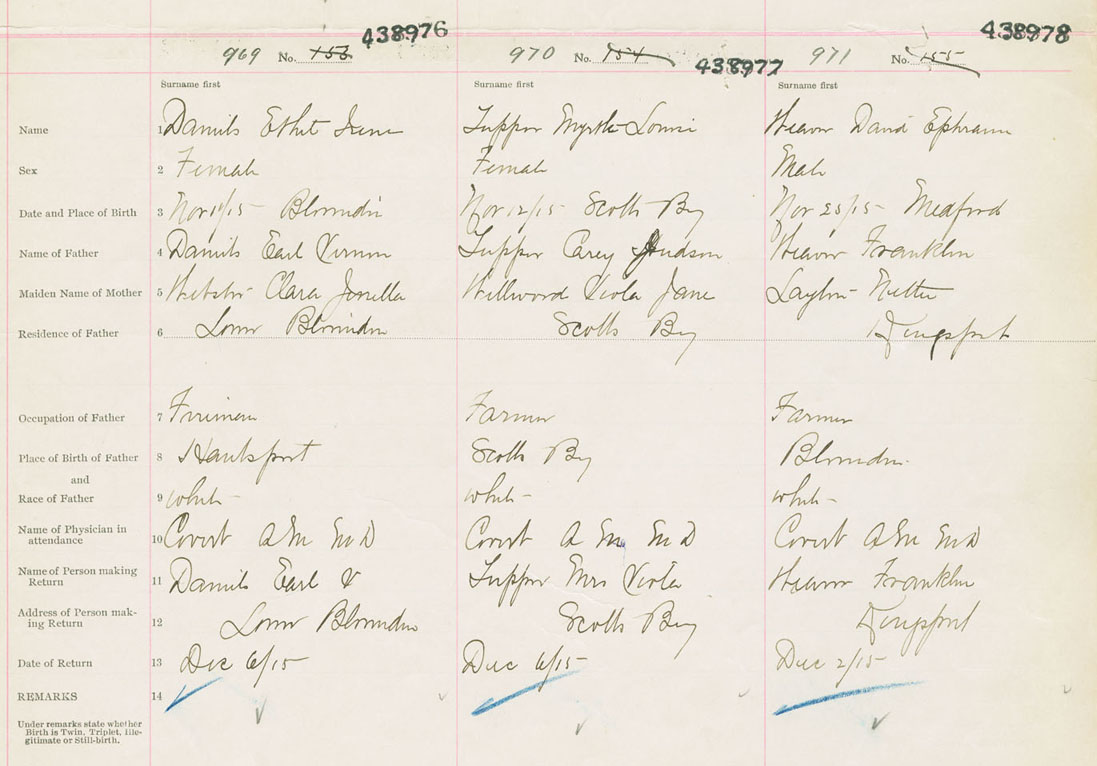 438976 438978
969 No. 153 970 No. 154 438977 971 No. 155
Surname first Surname first Surname first
Name 1 Daniels Ethel Irene Tupper Myrtle Louise Weaver David Ephraim
Sex 2 Female Female Male
Date and Place of Birth 3 Nov /15 Blomidon Nov 12/15 Scotts Bay Nov 25/15 Medford
Name of Father 4 Daniels Earl Vernon Tupper Carey Judson Weaver Franklin
Maiden Name of Mother 5 Webster Clara Wellwood Viola Jane Layton Nettie
Residence of Father 6 Lower Blomidon Scotts Bay Kingsport
Occupation of Father 7 Fireman Farmer Farmer
Place of Birth of Father 8 Hantsport Scotts Bay Blomidon
and
Race of Father 9 white white white
Name of Physician in attendance 10 Covert A M M D Covert A M M D Covert A M M D
Name of Person making Return 11 Daniels Earl V Tupper Mrs Viola Weaver Franklin
Address of Person making Return 12 Lower Blomidon Scotts Bay Kingsport
Date of Return 13 Dec 6/15 Dec 6/15 Dec 2/15
REMARKS 14
Under remarks state whether
Birth is Twin, Triplet, Ille-
gitimate or Still-birth.